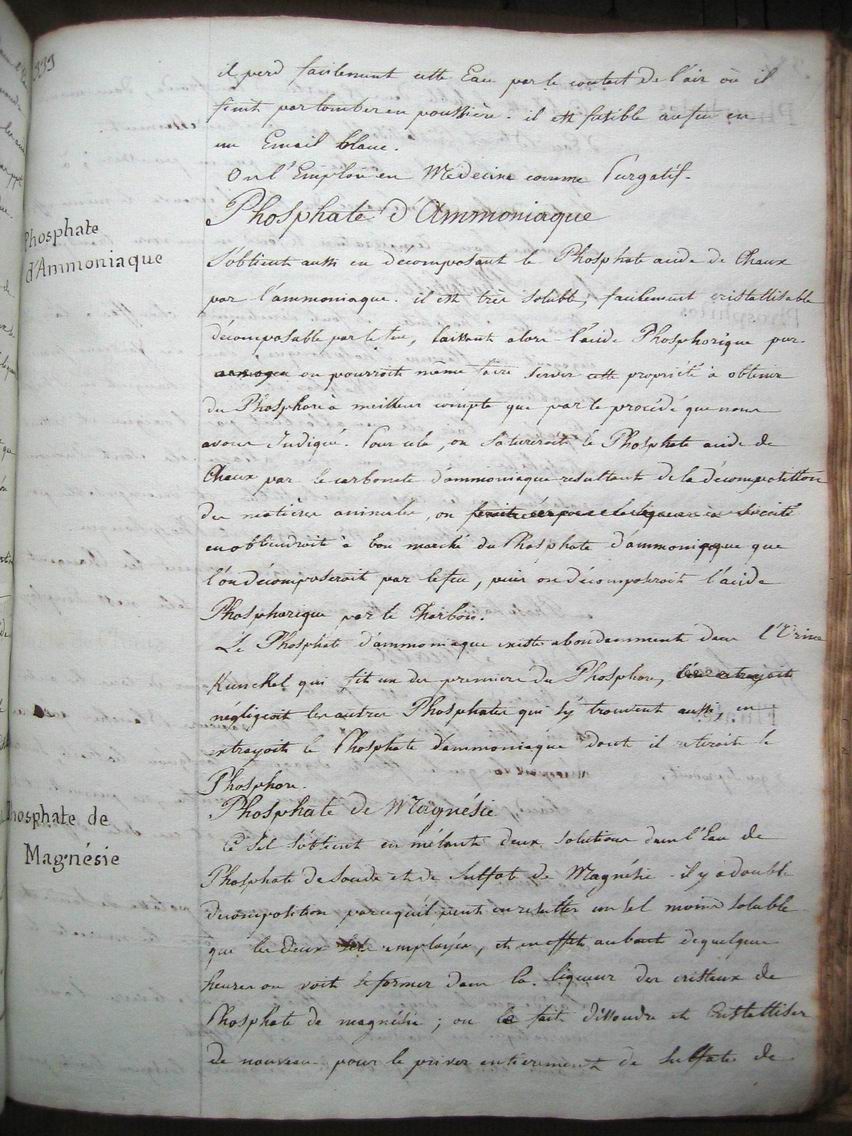 333
il perd facilement cette Eau par le contact de l'air où il
finit par tomber en poussière. il est fusible au feu en
un Email blanc.
On l'Emploi en Medecine comme Purgatif.
Phosphate d'Ammoniaque
Phosphate
d'Ammoniaque
S'obtient aussi en décomposant le Phosphate acide de Chaux
par l'ammoniaque. il est très soluble, facilement cristallisable
décomposable par le feu, laissant alors l'acide Phosphorique pur.
on pourroit même faire servir cette propriété à obtenir
du Phosphore à meilleur compte que par le procédé que nous
avons Indiqué. Pour cela, on satureroit le Phosphate acide de
Chaux par le carbonate d'ammoniaque resultant de la décomposition
des matières animales, on
en obtiendroit à bon marché du Phosphate d'ammoniaque que
l'on décomposeroit par le feu, puis on décomposeroit l'acide
Phosphorique par le Charbon.
Le Phosphate d'ammoniaque existe abondamment dans l'Urine
Kunckel qui fit un des premiers du Phosphore,
négligeoit les autres Phosphates qui s'y trouvent aussi, en
extrayoit le Phosphate d'ammoniaque dont il retiroit le
Phosphore.
Phosphate de Magnésie
Phosphate de
Magnésie
Ce Sel s'obtient en mêlant deux solutions dans l'Eau de
Phosphate de Soude et de Sulfate de Magnésie. il y a double
décomposition parcequ'il peut en resulter un sel moins soluble
que les deux employés, et en effet au bout de quelques
heures on voit se former dans la liqueur des cristaux de
Phosphate de magnésie; on le fait dissoudre et Cristalliser
de nouveau pour le priver entierement de Sulfate de